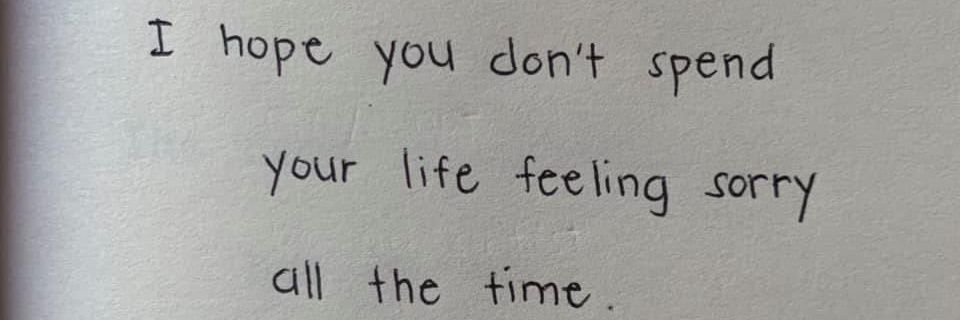 I hope you don't spend
your life feeling sorry
all the time.